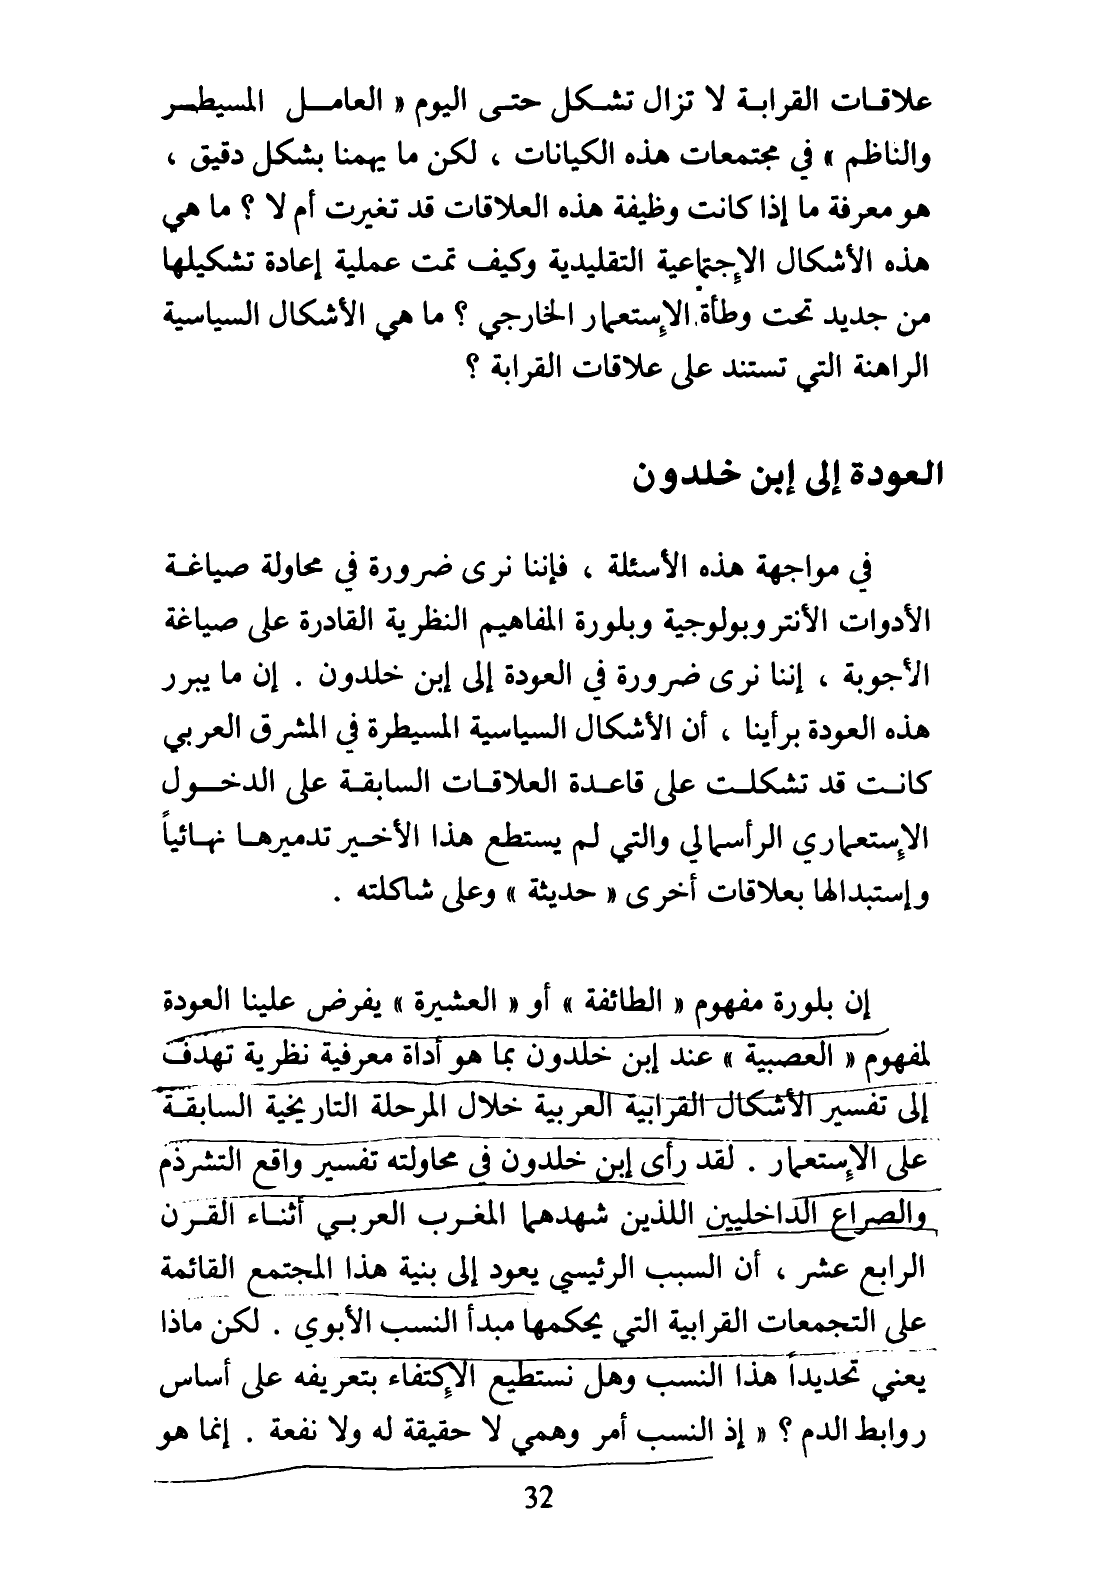 علاقات القرابة لا تزال تشكل حتى اليوم « العامل المسيطر
والناظم » في مجتمعات هذه الكيانات ، لكن ما يهمنا بشكل دقيق ،
هو معرفة ما إذا كانت وظيفة هذه العلاقات قد تغيرت أم لا ؟ ما هي
هذه الأشكال الإجتماعية التقليدية وكيف تمت عملية إعادة تشكيلها
من جديد تحت وطأة الإستعمار الخارجي ؟ ما هي الأشكال السياسية
الراهنة التي تستند على علاقات القرابة ؟
العودة إلى إبن خلدون
في مواجهة هذه الأسئلة ، فإننا نرى ضرورة في محاولة صياغة
الأدوات الأنتروبولوجية وبلورة المفاهيم النظرية القادرة على صياغة
الأجوبة ، إننا نرى ضرورة في العودة إلى إبن خلدون . إن ما يبرر
هذه العودة برأينا ، أن الأشكال السياسية المسيطرة في المشرق العربي
كانت قد تشكلت على قاعدة العلاقات السابقة على الدخول
الإستعماري الرأسمالي والتي لم يستطع هذا الأخير تدميرها نهائياً
وإستبدالها بعلاقات أخرى « حديثة » وعلى شاكلته .
إن بلورة مفهوم « الطائفة » أو « العشيرة » يفرض علينا العودة
لمفهوم « العصبية » عند إبن خلدون بما هو أداة معرفية نظرية تهدف
إلى تفسير الأشكال القرابية العربية خلال المرحلة التاريخية السابقة
على الإستعمار . لقد رأى إبن خلدون في محاولته تفسير واقع التشرذم
والصراع الداخليين اللذين شهدهما المغرب العربي أثناء القرن
الرابع عشر ، أن السبب الرئيسي يعود إلى بنية هذا المجتمع القائمة
على التجمعات القرابية التي يحكمها مبدأ النسب الأبوي . لكن ماذا
يعني تحديداً هذا النسب وهل نستطيع الإكتفاء بتعريفه على أساس
روابط الدم ؟ « إذ النسب أمر وهمي لا حقيقة له ولا نفعة . إنما هو
32